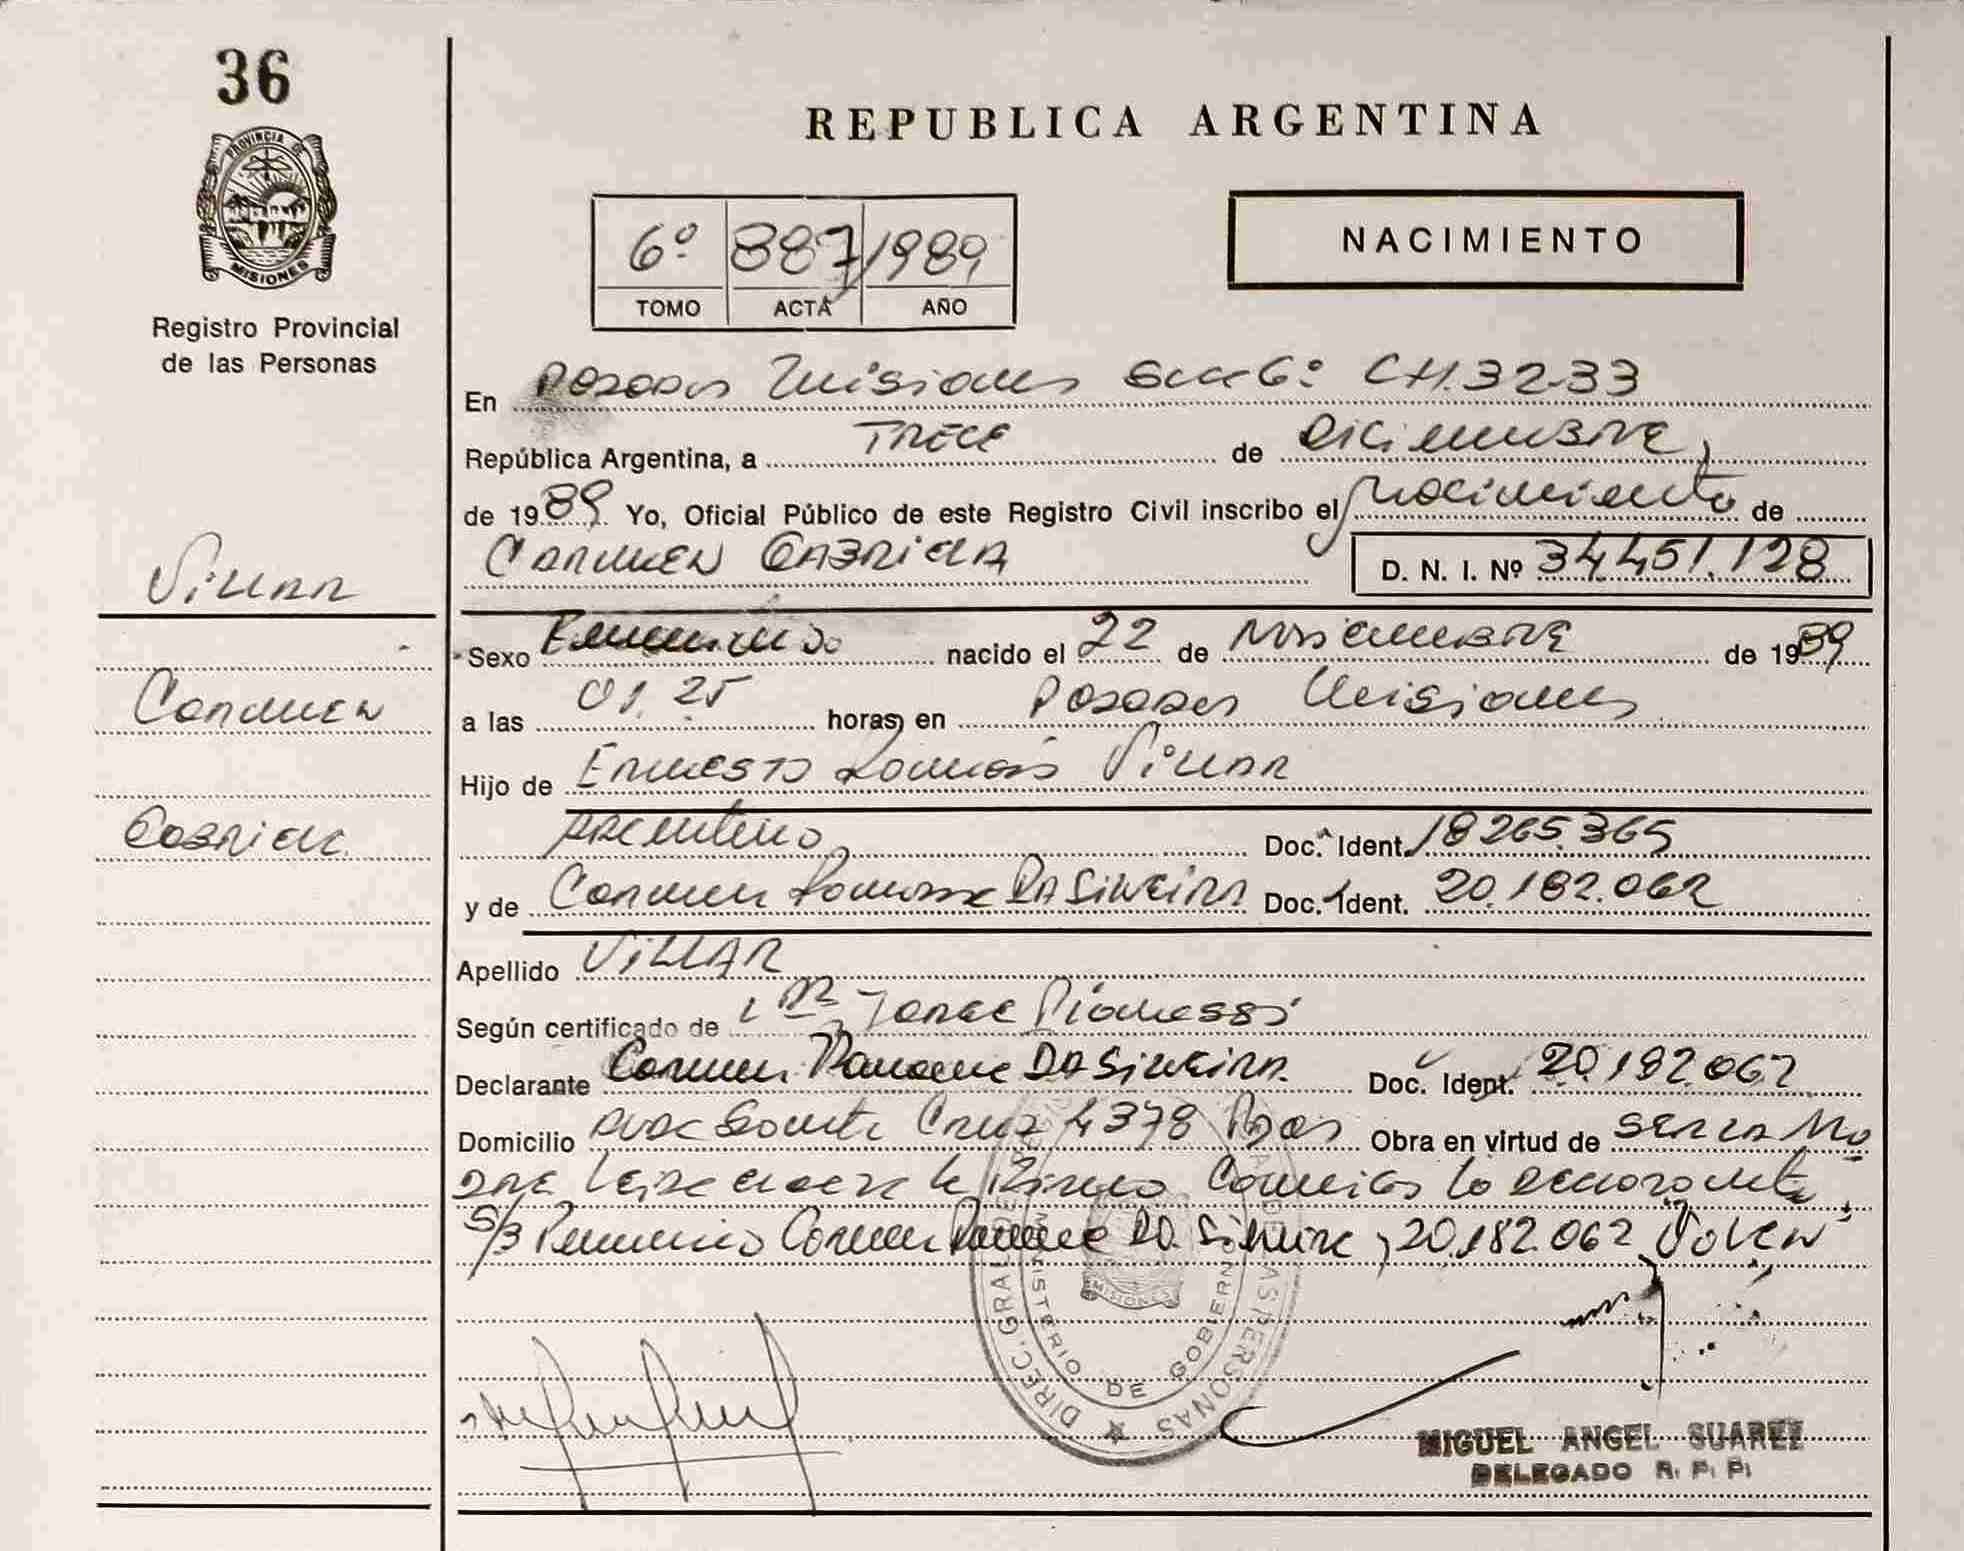 36
PROVINCIA DE
MISIONES
Registro Provincial
de las Personas
REPUBLICA ARGENTINA
6º 887 1989
TOMO ACTA AÑO
NACIMIENTO
En Posadas Misiones Secc 6º CH.32-33
República Argentina, a TRECE de Diciembre
de 1989 Yo, Oficial Público de este Registro Civil inscribo el Nacimiento de
Carmen Gabriela D. N. I. Nº 34.451.128
Villar
Carmen
Gabriela
Sexo Femenino nacido el 22 de Noviembre de 1989
a las 01.25 horas, en Posadas Misiones
Hijo de Ernesto Ramón Villar
Argentino Doc. Ident. 18265.365
y de Carmen Ramona Da Silveira Doc. Ident. 20.182.062
Apellido Villar
Según certificado de Dr Jorge
Declarante Carmen Ramona Da Silveira Doc. Ident. 20.182.062
Domicilio Avda Santa Cruz 4378 Pdas Obra en virtud de ser la Ma
dre Leida el acta la firma Conmigo la declarante
S/B Carmen Ramona Da Silveira, 20.182.062 Valen
DIREC. GRAL DE LAS PERSONAS
MINISTERIO DE GOBIERNO
MISIONES
MIGUEL ANGEL SUAREZ
DELEGADO R. P. P.